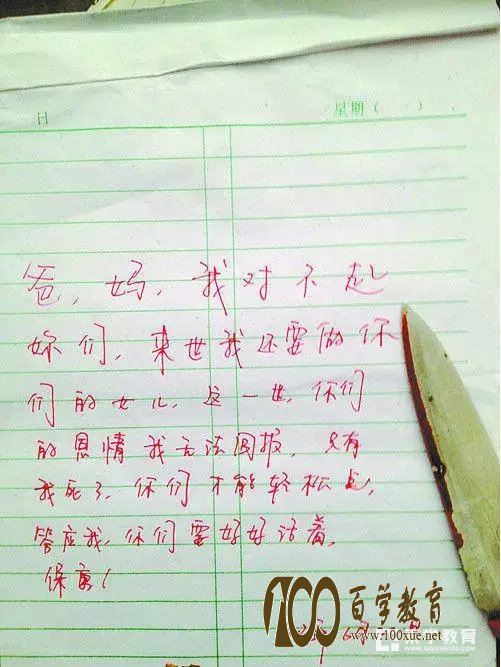 日 星期( )
爸,妈,我对不起
你们,来世我还要做你
们的女儿,这一世,你们
的恩情我无法回报,只有
我死了,你们才能轻松点,
答应我,你们要好好活着,
保重!
100百学教育
www.100xue.net
WWW.QINXUE100.COM